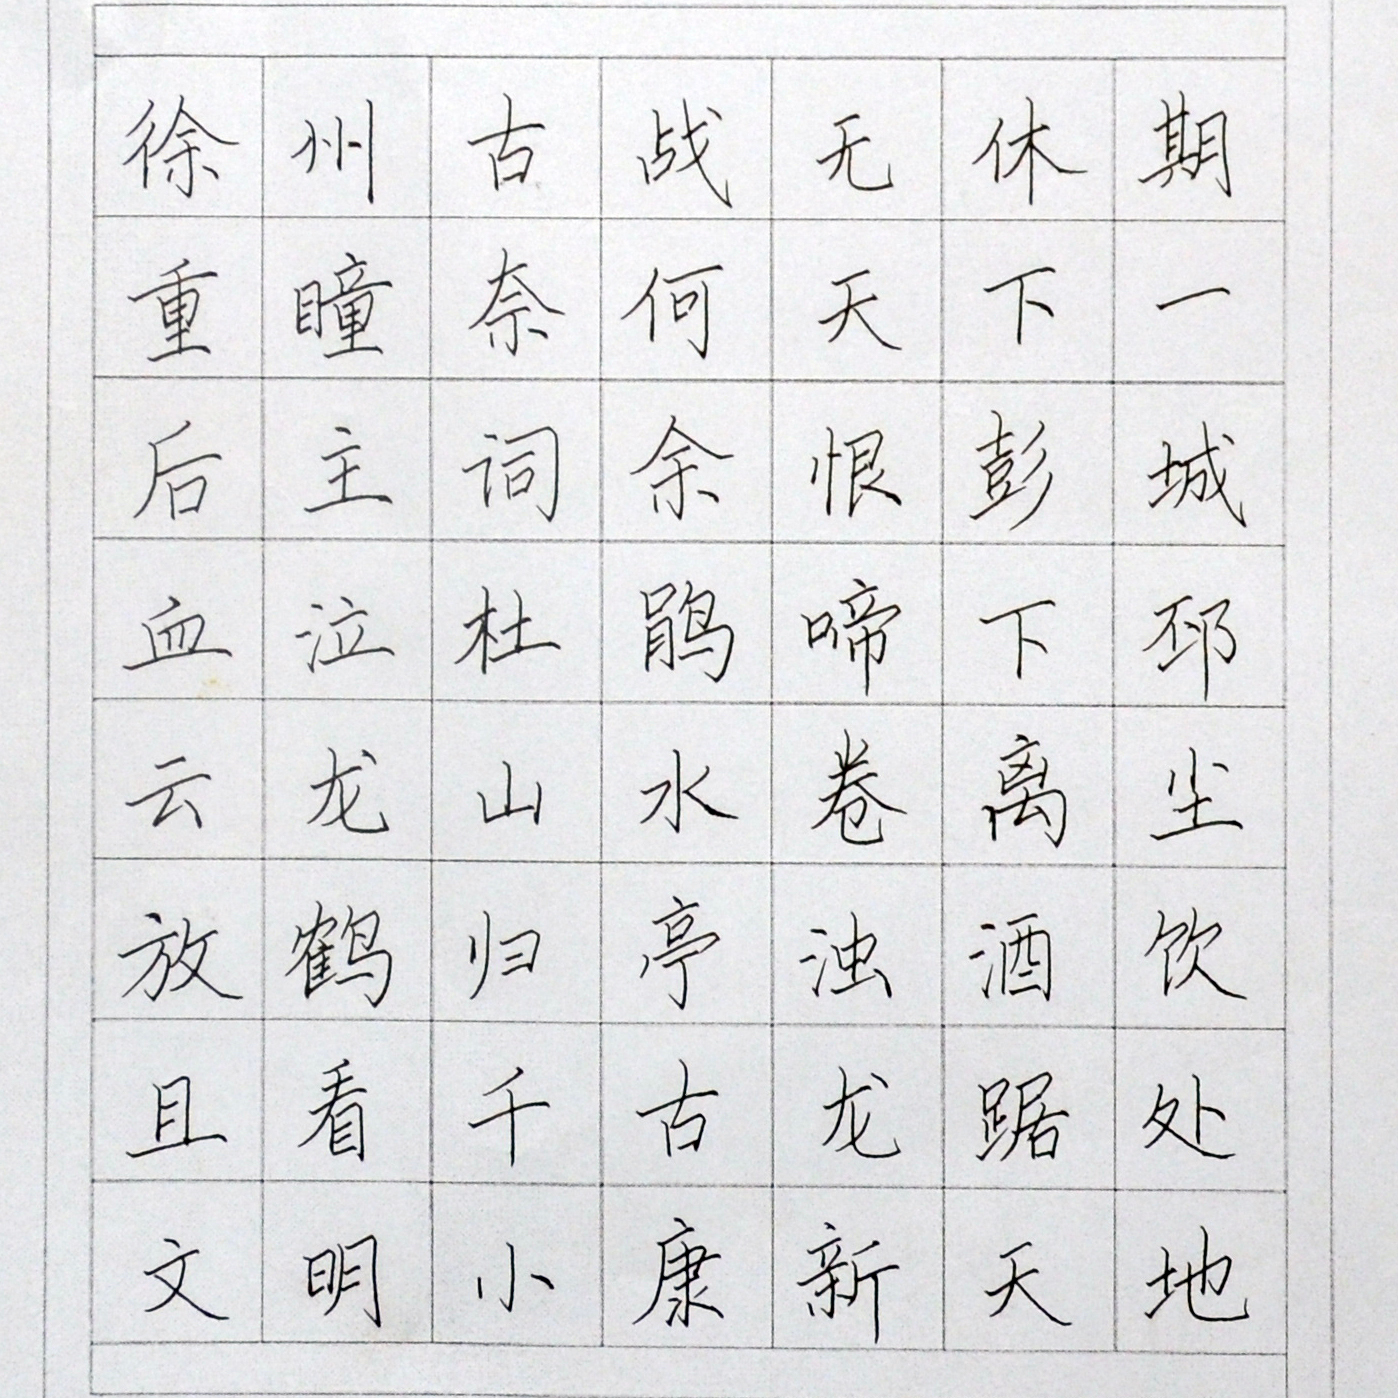 徐州古战无休期
重瞳奈何天下一
后主词余恨彭城
血泣杜鹃啼下邳
云龙山水卷离尘
放鹤归亭浊酒饮
且看千古龙踞处
文明小康新天地